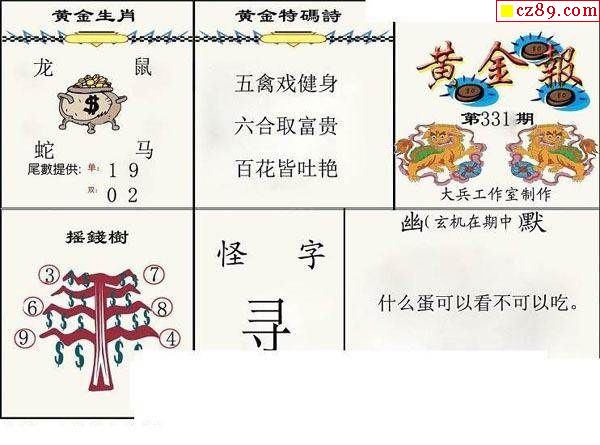 cz89.com
黄金生肖
龙 鼠
$
蛇 马
尾數提供: 单: 1 9
双: 0 2
黄金特碼詩
五禽戏健身
六合取富贵
百花皆吐艳
黄金報
10
10
10
第331期
大兵工作室制作
摇錢樹
③ ⑦
⑥ ⑧
⑨ ④
$ $ $ $ $ $ $ $ $ $
怪 字
寻
幽(玄机在期中)默
什么蛋可以看不可以吃。